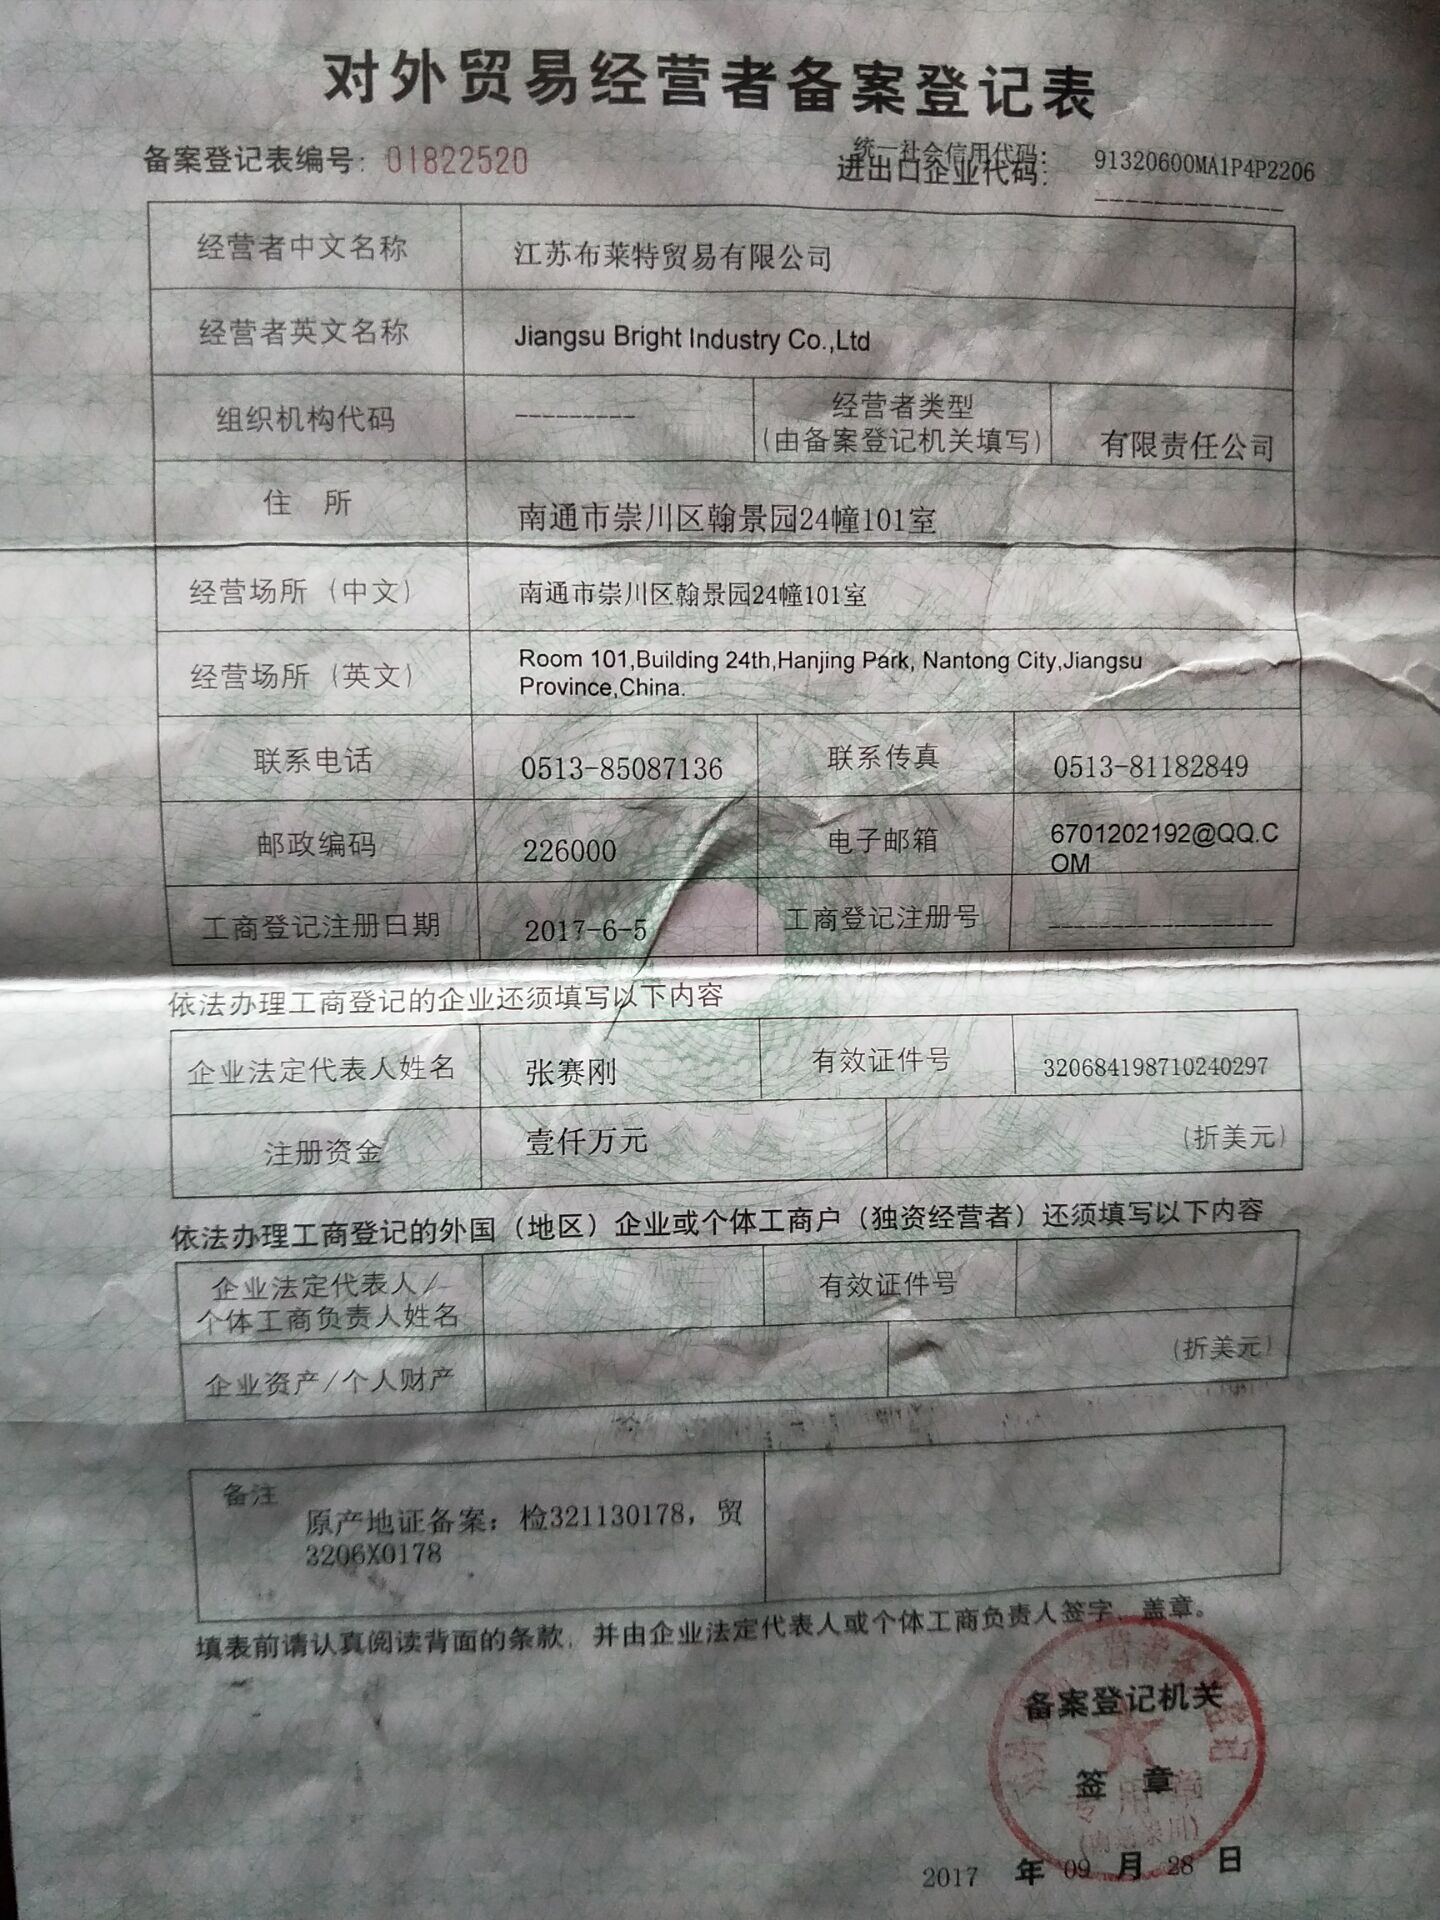 对外贸易经营者备案登记表
备案登记表编号：01822520
统一社会信用代码：
进出口企业代码：
91320600MA1P4P2206
-------------
经营者中文名称 江苏布莱特贸易有限公司
经营者英文名称 Jiangsu Bright Industry Co.,Ltd
组织机构代码 --------- 经营者类型
(由备案登记机关填写) 有限责任公司
住 所 南通市崇川区翰景园24幢101室
经营场所（中文） 南通市崇川区翰景园24幢101室
经营场所（英文） Room 101,Building 24th,Hanjing Park, Nantong City,Jiangsu
Province,China.
联系电话 0513-85087136 联系传真 0513-81182849
邮政编码 226000 电子邮箱 6701202192@QQ.C
OM
工商登记注册日期 2017-6-5 工商登记注册号 ------------------
依法办理工商登记的企业还须填写以下内容
企业法定代表人姓名 张赛刚 有效证件号 320684198710240297
注册资金 壹仟万元 (折美元)
依法办理工商登记的外国（地区）企业或个体工商户（独资经营者）还须填写以下内容
企业法定代表人/
个体工商负责人姓名 有效证件号
企业资产/个人财产 (折美元)
备注
原产地证备案：检321130178，贸
3206X0178
填表前请认真阅读背面的条款，并由企业法定代表人或个体工商负责人签字、盖章。
备案登记机关
签 章
专用章
2017 年 09 月 28 日